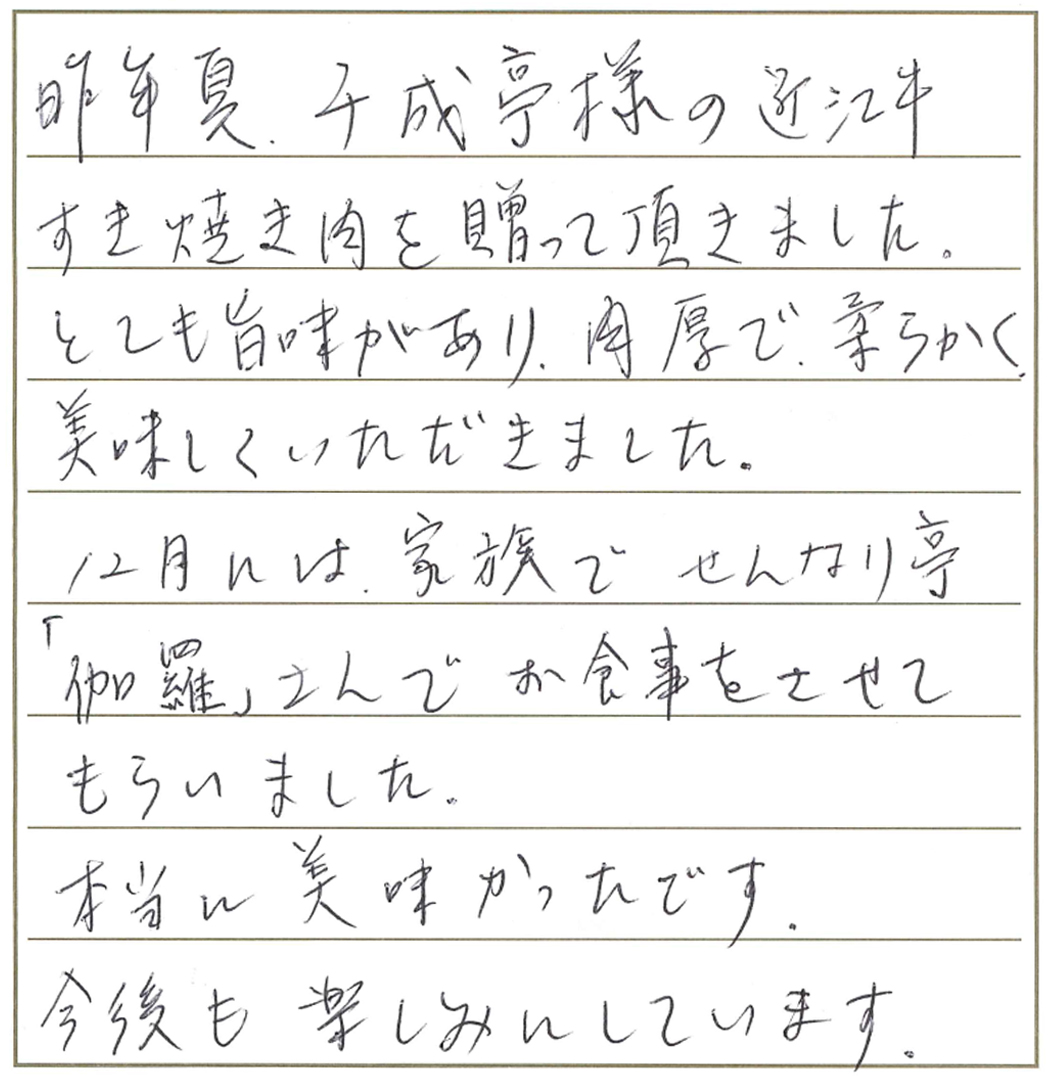 昨年夏、千成亭様の近江牛
すき焼き肉を贈って頂きました。
とても旨味があり、肉厚で、柔らかく、
美味しくいただきました。
12月には、家族で せんなり亭
「伽羅」さんで お食事をさせて
もらいました。
本当に美味かったです。
今後も楽しみにしています。